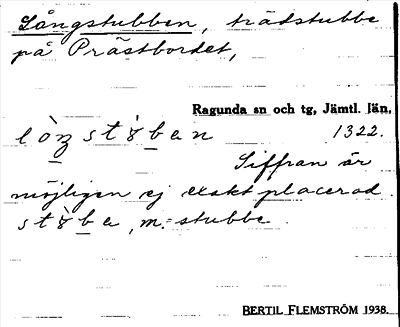 Långstubben, trädstubbe
på Prästbordet,
Ragunda sn och tg, Jämtl. län,
lò̠ŋ stɤ̠̀ben 1322.
Siffran är
möjligen ej exakt placerad.
stɤ̠̀be, m. = stubbe.
BERTIL FLEMSTRÖM 1938.